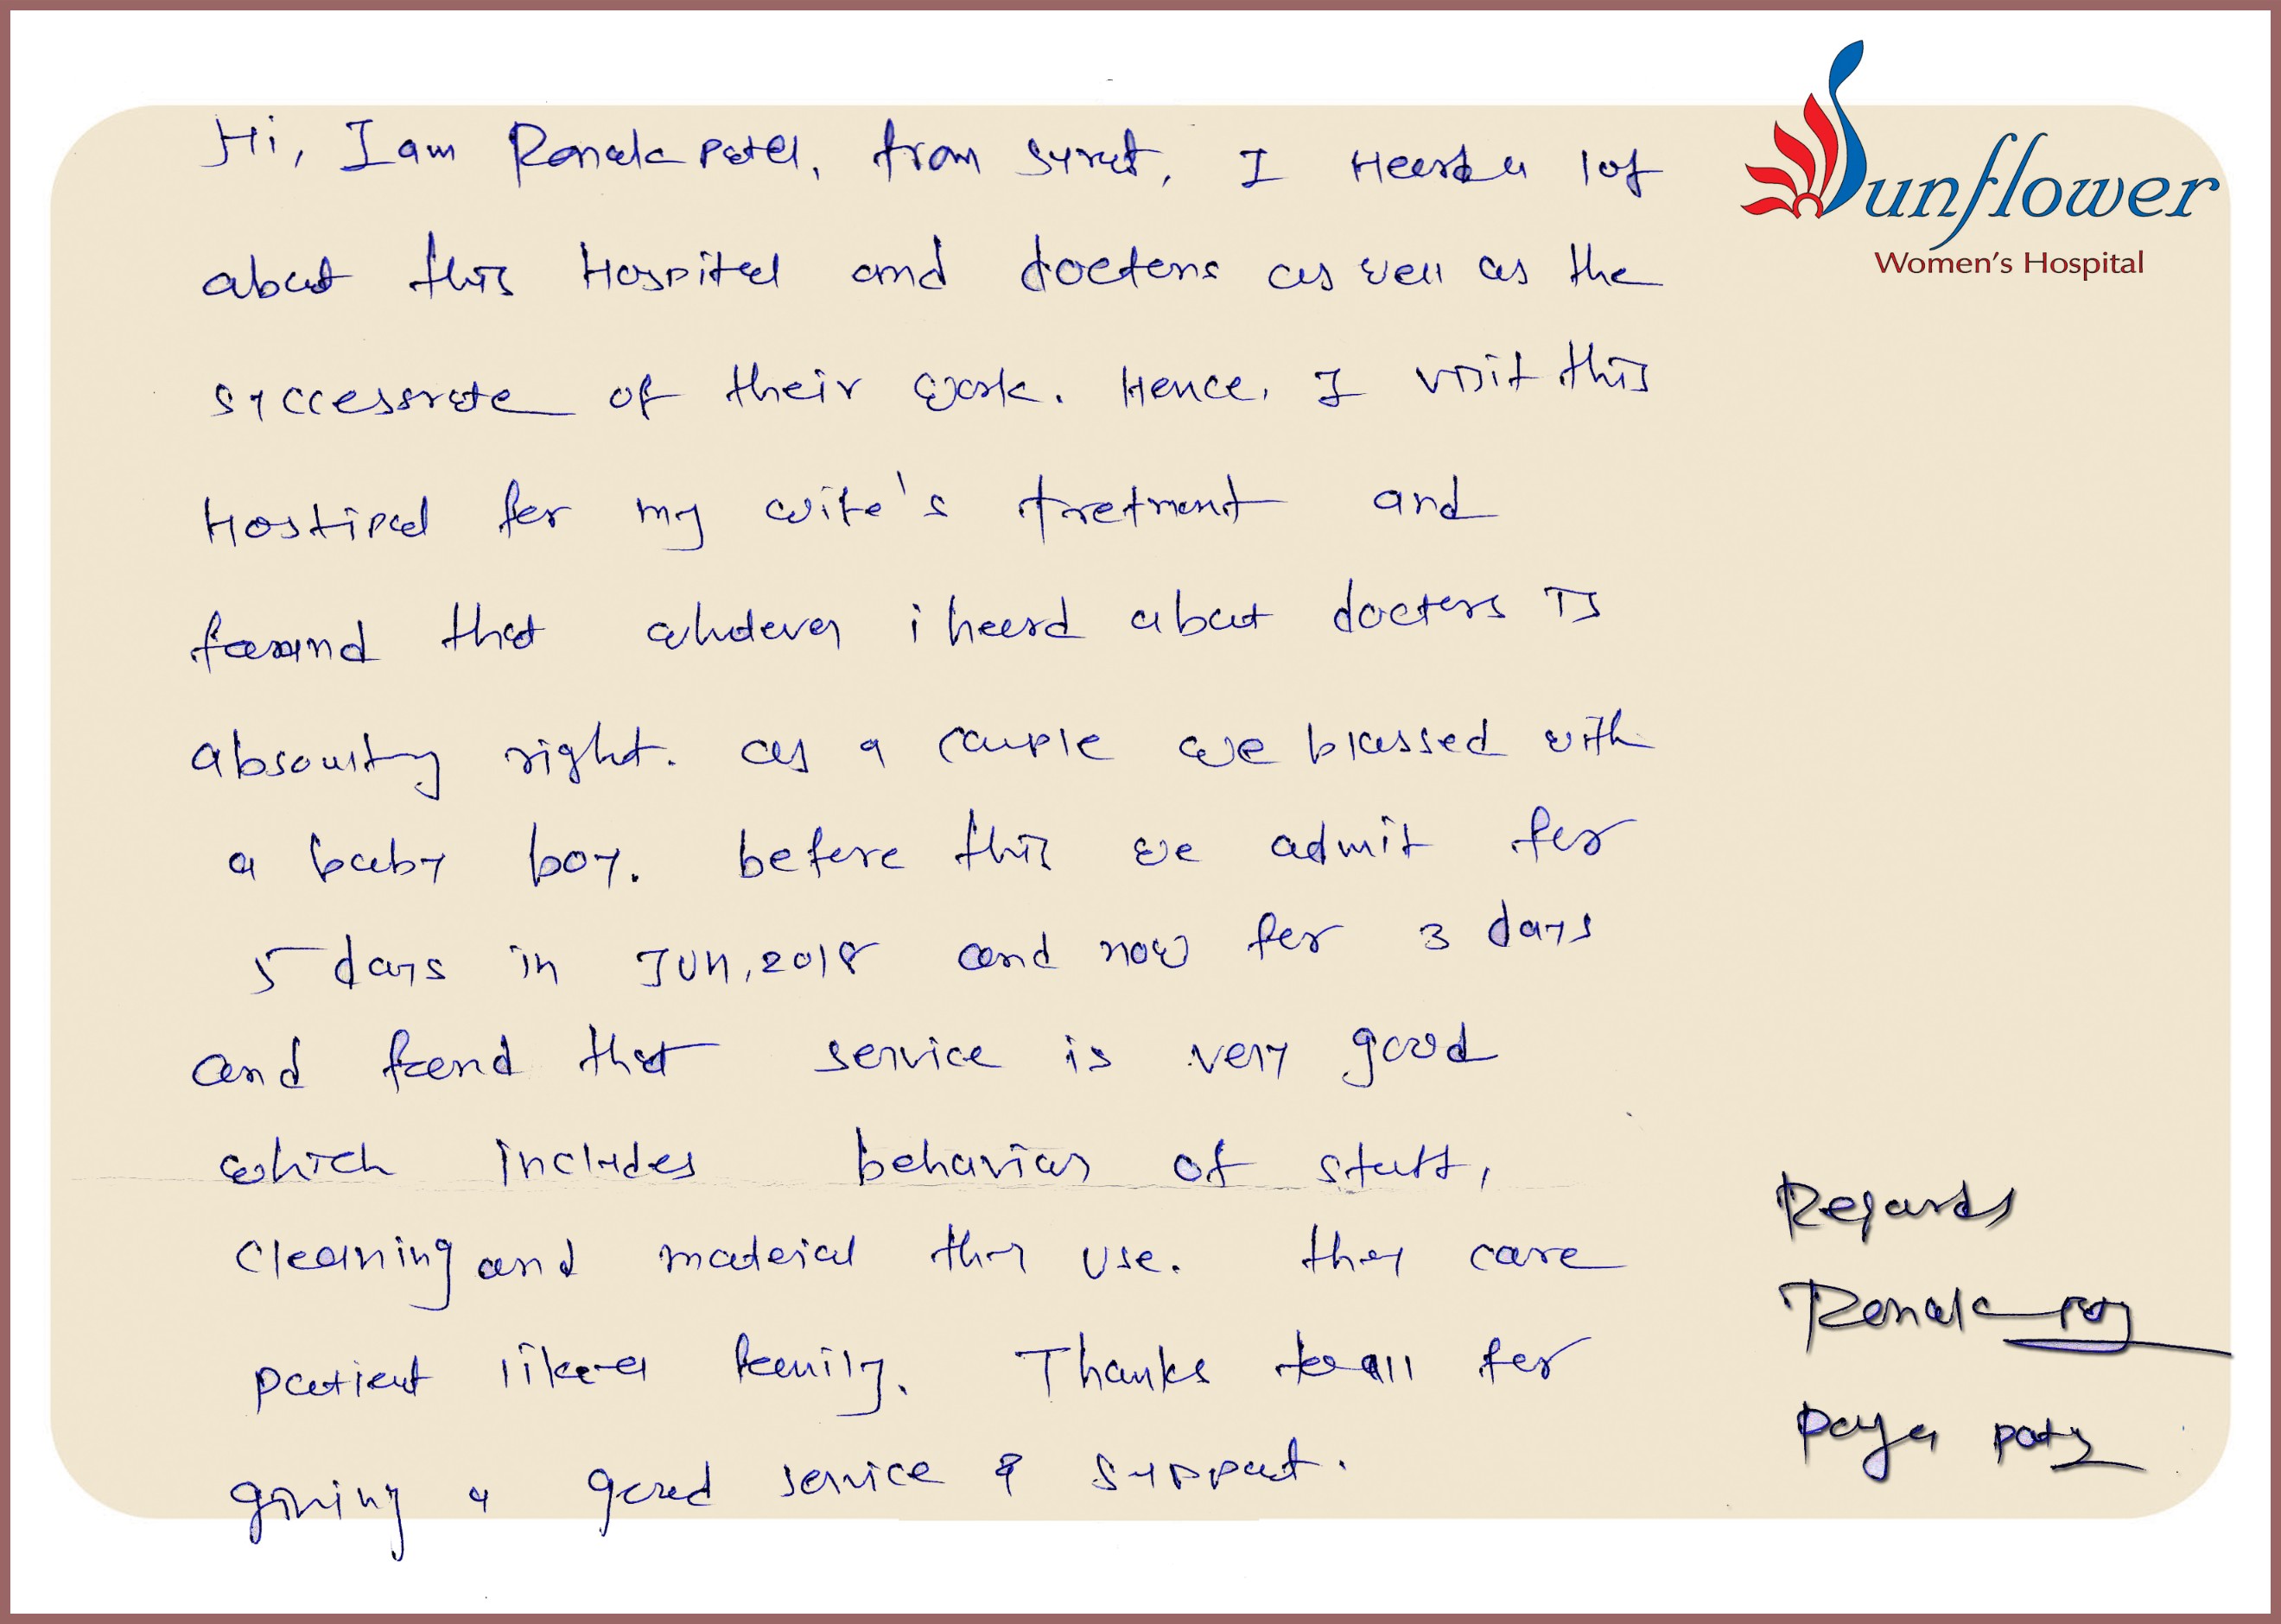 Hi, I am Ronak patel, from surat, I Heard a lot
Sunflower
Women's Hospital
about this Hospital and doctors as well as the
successrate of their work. Hence, I visit this
Hostipal for my wife's tretment and
found that whatever i heard about doctors is
absoultly right. as a couple we blessed with
a baby boy. before this we admit for
5 days in Jun, 2018 and now for 3 days
and found that service is very good
which includes behavior of staff,
cleaning and mateial they use. they care
patient like a family. Thanks to all for
giving a good service & support.
Regards
Ronak
Payal